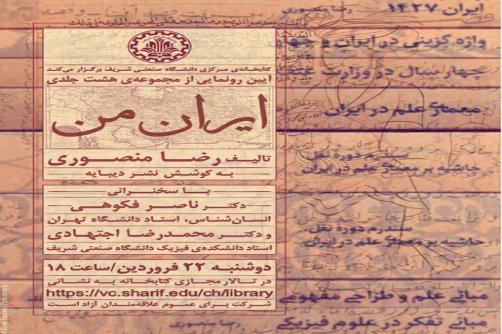 کتابخانه‌ی مرکزی دانشگاه صنعتی شریف برگزار می‌کند
آیین رونمایی از مجموعه‌ی هشت جلدی
ایران من
تالیف رضا منصوری
به کوشش نشر دیبایه
با سخنرانی
دکتر ناصر فکوهی
انسان‌شناس، استاد دانشگاه تهران
و دکتر محمدرضا اجتهادی
استاد دانشکده‌ی فیزیک دانشگاه صنعتی شریف
دوشنبه ۲۲ فروردین/ساعت ۱۸
در تالار مجازی کتابخانه به نشانی
https://vc.sharif.edu/ch/library
شرکت برای عموم علاقه‌مندان آزاد است
ایران ۱۴۲۷
رضا منصوری
واژه گزینی در ایران و جهان
چهار سال در وزارت
معماری علم در ایران
سندرم دوره نقل
حاشیه بر معماری علم در ایران
سندرم دوره نقل
حاشیه بر معماری علم در ایران
مبانی علم و طراحی مفهومی
مبانی تفکر در علوم فیزیکی